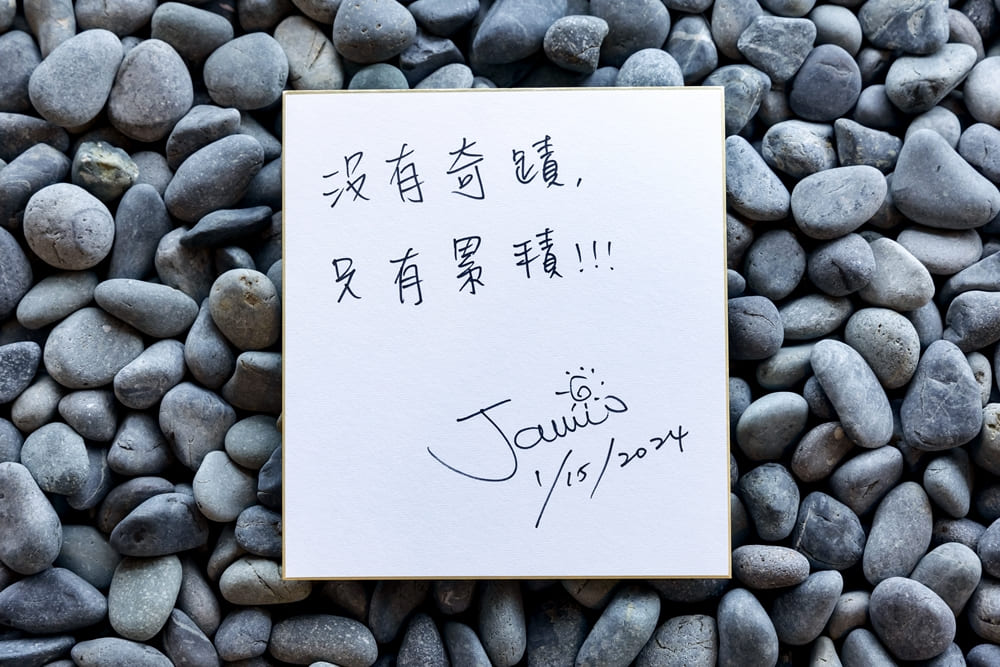 沒有奇蹟,
只有累積!!!
Jamie
1/15/2024